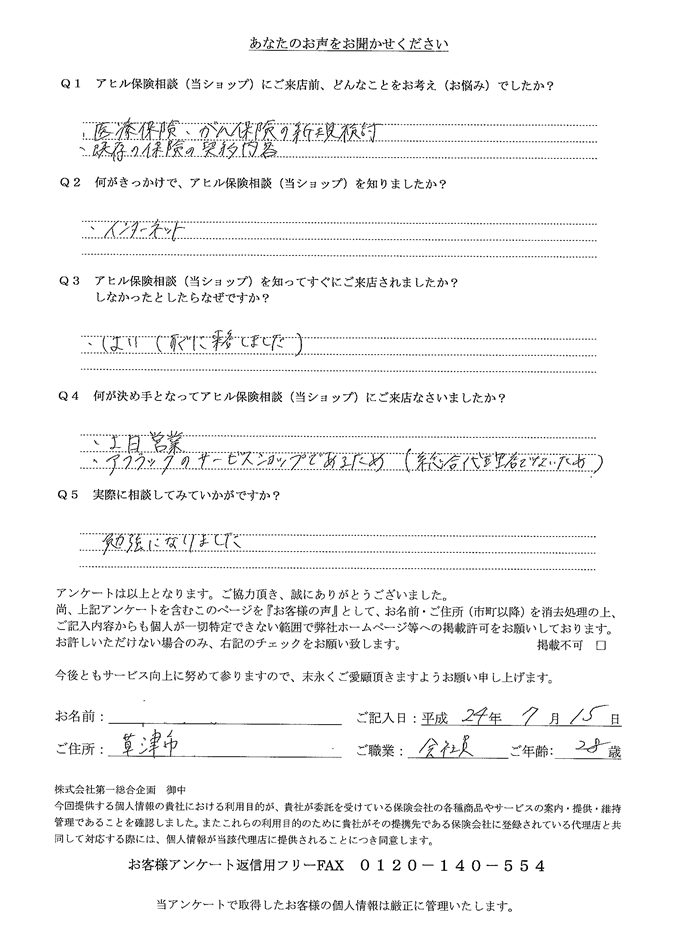 あなたのお声をお聞かせください
Q1 アヒル保険相談（当ショップ）にご来店前、どんなことをお考え（お悩み）でしたか？
、医療保険、がん保険の新規検討
、既存の保険の契約内容
Q2 何がきっかけで、アヒル保険相談（当ショップ）を知りましたか？
、インターネット
Q3 アヒル保険相談（当ショップ）を知ってすぐにご来店されましたか？
しなかったとしたらなぜですか？
、はい（すぐに来店しました）
Q4 何が決め手となってアヒル保険相談（当ショップ）にご来店なさいましたか？
、土日営業
、アフラックのサービスショップであるため（総合代理店でないため）
Q5 実際に相談してみていかがですか？
勉強になりました
アンケートは以上となります。ご協力頂き、誠にありがとうございました。
尚、上記アンケートを含むこのページを『お客様の声』として、お名前・ご住所（市町以降）を消去処理の上、
ご記入内容からも個人が一切特定できない範囲で弊社ホームページ等への掲載許可をお願いしております。
お許しいただけない場合のみ、右記のチェックをお願い致します。 掲載不可 □
今後ともサービス向上に努めて参りますので、末永くご愛顧頂きますようお願い申し上げます。
お名前： ご記入日：平成 24年 7月 15日
ご住所： 草津市 ご職業： 会社員 ご年齢： 28歳
株式会社第一総合企画 御中
今回提供する個人情報の貴社における利用目的が、貴社が委託を受けている保険会社の各種商品やサービスの案内・提供・維持
管理であることを確認しました。またこれらの利用目的のために貴社がその提携先である保険会社に登録されている代理店と共
同して対応する際には、個人情報が当該代理店に提供されることにつき同意します。
お客様アンケート返信用フリーFAX 0120－140－554
当アンケートで取得したお客様の個人情報は厳正に管理いたします。